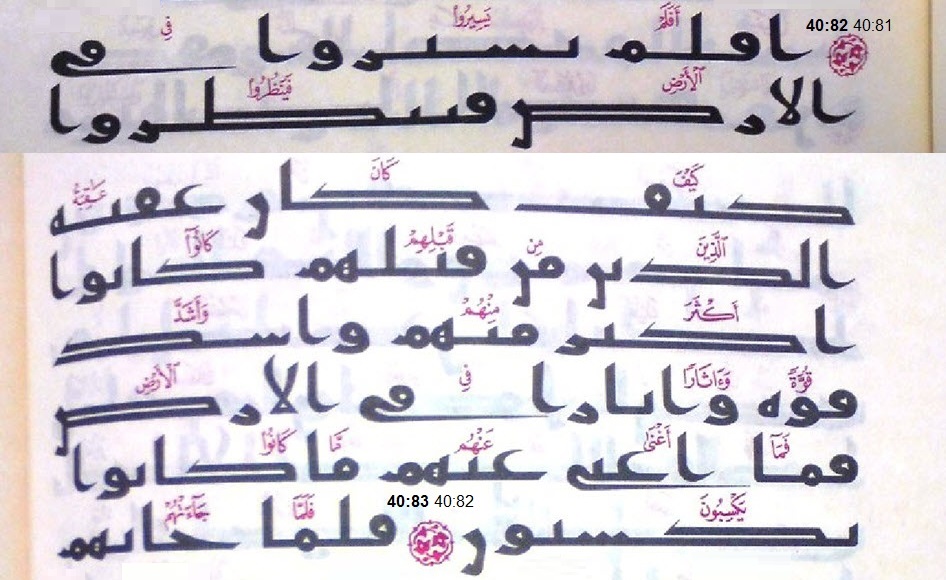 40:82 40:81
أَفَلَمْ يَسِيرُوا۟ فِى
افلم يسيروا في
ٱلْأَرْضِ فَيَنظُرُوا۟
الارض فينظروا
كَيْفَ كَانَ عَٰقِبَةُ
كيف كان عقبه
ٱلَّذِينَ مِن قَبْلِهِمْ كَانُوٓا۟
الذين من قبلهم كانوا
أَكْثَرَ مِنْهُمْ وَأَشَدَّ
اكثر منهم واشد
قُوَّةً وَءَاثَارًا فِى ٱلْأَرْضِ
قوه واثارا في الارض
فَمَآ أَغْنَىٰ عَنْهُم مَّا كَانُوا۟
فما اغنى عنهم ما كانوا
40:83 40:82
يَكْسِبُونَ فَلَمَّا جَآءَتْهُمْ
يكسبون فلما جاتهم